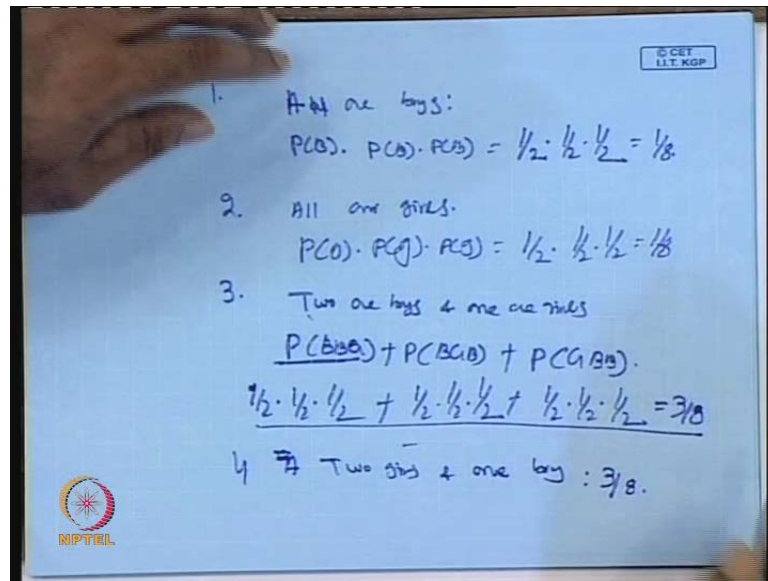 © CET
I.I.T. KGP
1. All are boys:
P(B). P(B). P(B) = 1/2. 1/2. 1/2 = 1/8.
2. All are girls.
P(G). P(g). P(g) = 1/2. 1/2. 1/2 = 1/8
3. Two are boys & one are girls
P(BBG) + P(BGB) + P(GBB).
1/2. 1/2. 1/2 + 1/2. 1/2. 1/2 + 1/2. 1/2. 1/2 = 3/8
4 Two girls & one boy : 3/8.
NPTEL